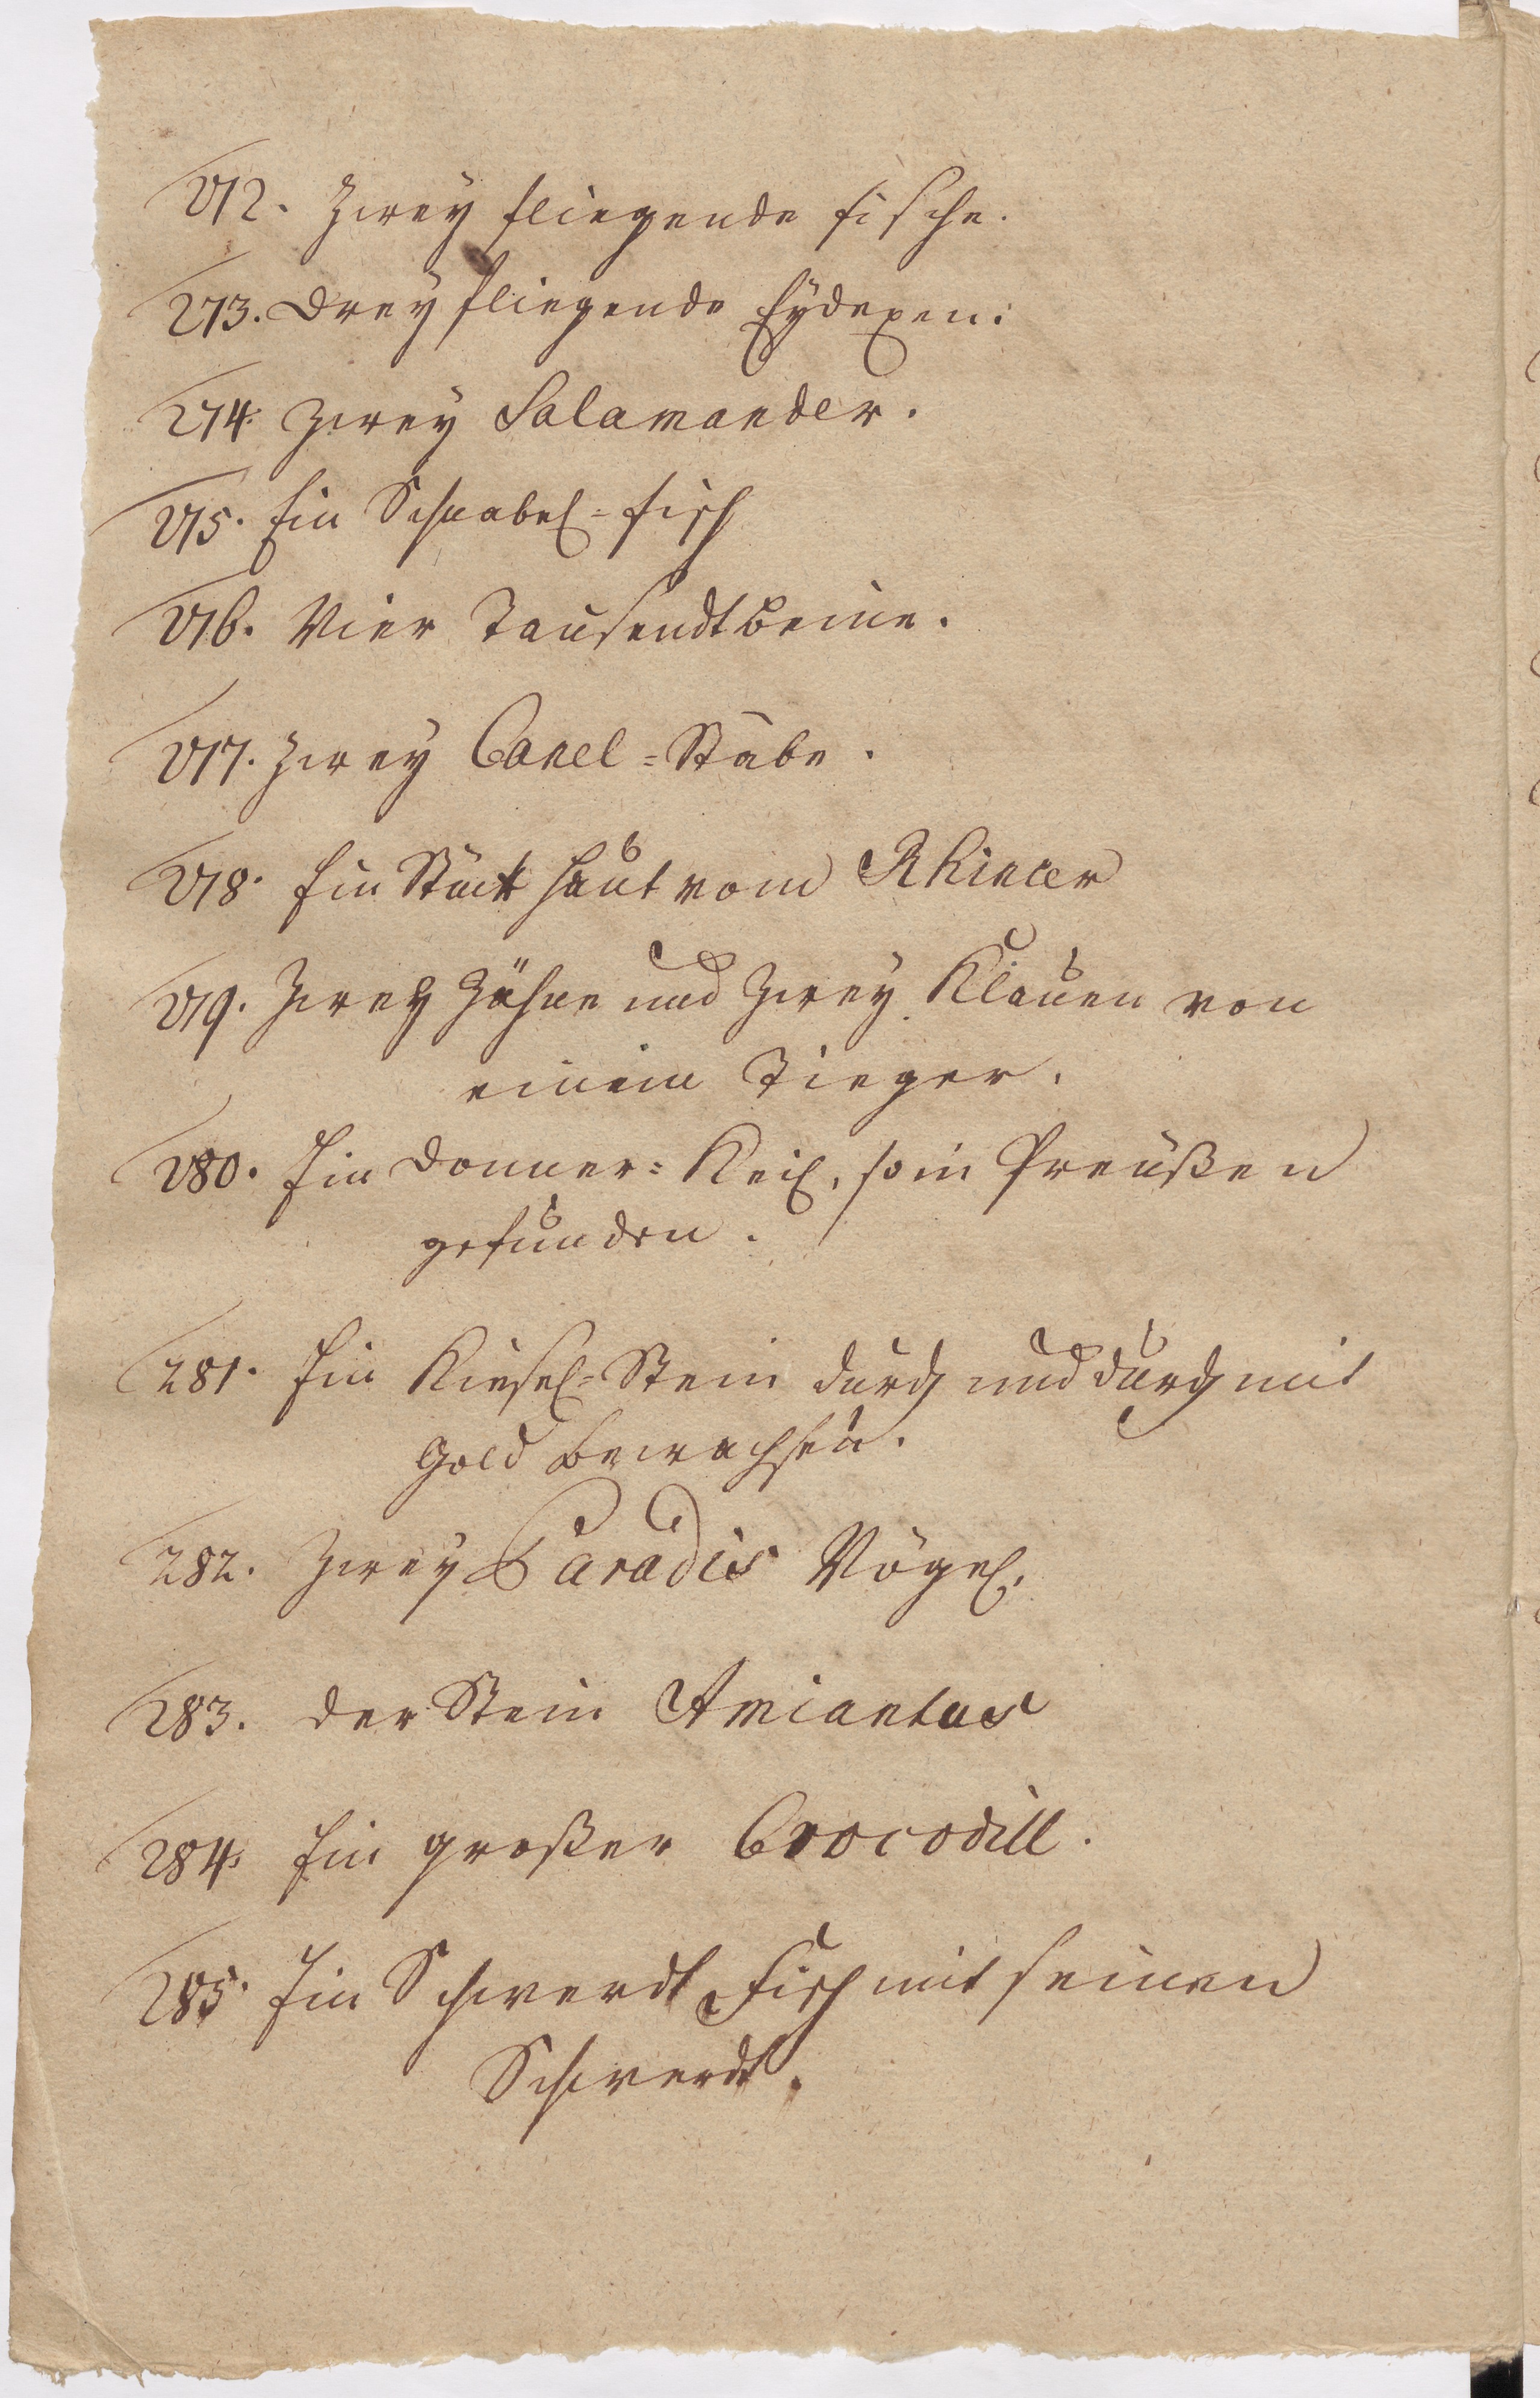 272. Zweÿ fliegende fische.
273. Dreÿ fliegende Eÿdexen.
274. Zweÿ Salamander.
275. Ein Schnabel=fisch
276. Vier Tausendtbeine.
277. Zweÿ Canel=Stäbe.
278. Ein Stück Haut vom Rhinocer
279. Zweÿ Zähne und Zweÿ Klauen von
einem Tieger.
280. Ein Donner=Keil, so in Preußen
gefunden.
281. Ein Kiesel=Stein durch und durch mit
Gold bewachsen.
282. Zweÿ Paradis Vögel.
283. Der Stein Amiantus
284. Ein großer Crocodill.
285. Ein Schwerdt Fisch mit seinen
Schwerdt.